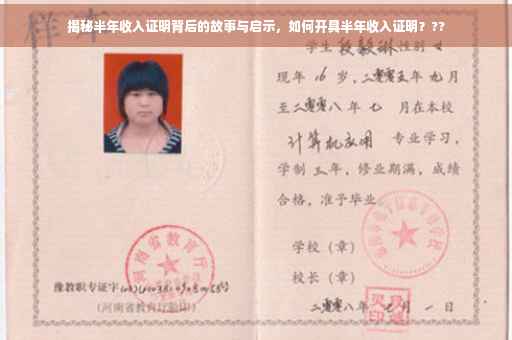 揭秘半年收入证明背后的故事与启示，如何开具半年收入证明？??
样本
学生段毅琳性别女
现年16岁，二零零五年九月
至二零零八年七月在本校
计算机应用 专业学习，
学制三年，修业期满，成绩
合格，准予毕业
学校（章）
校长（章）
二零零八年七月一日
河南省教育厅
豫教职专证字
(河南省教育厅验印)